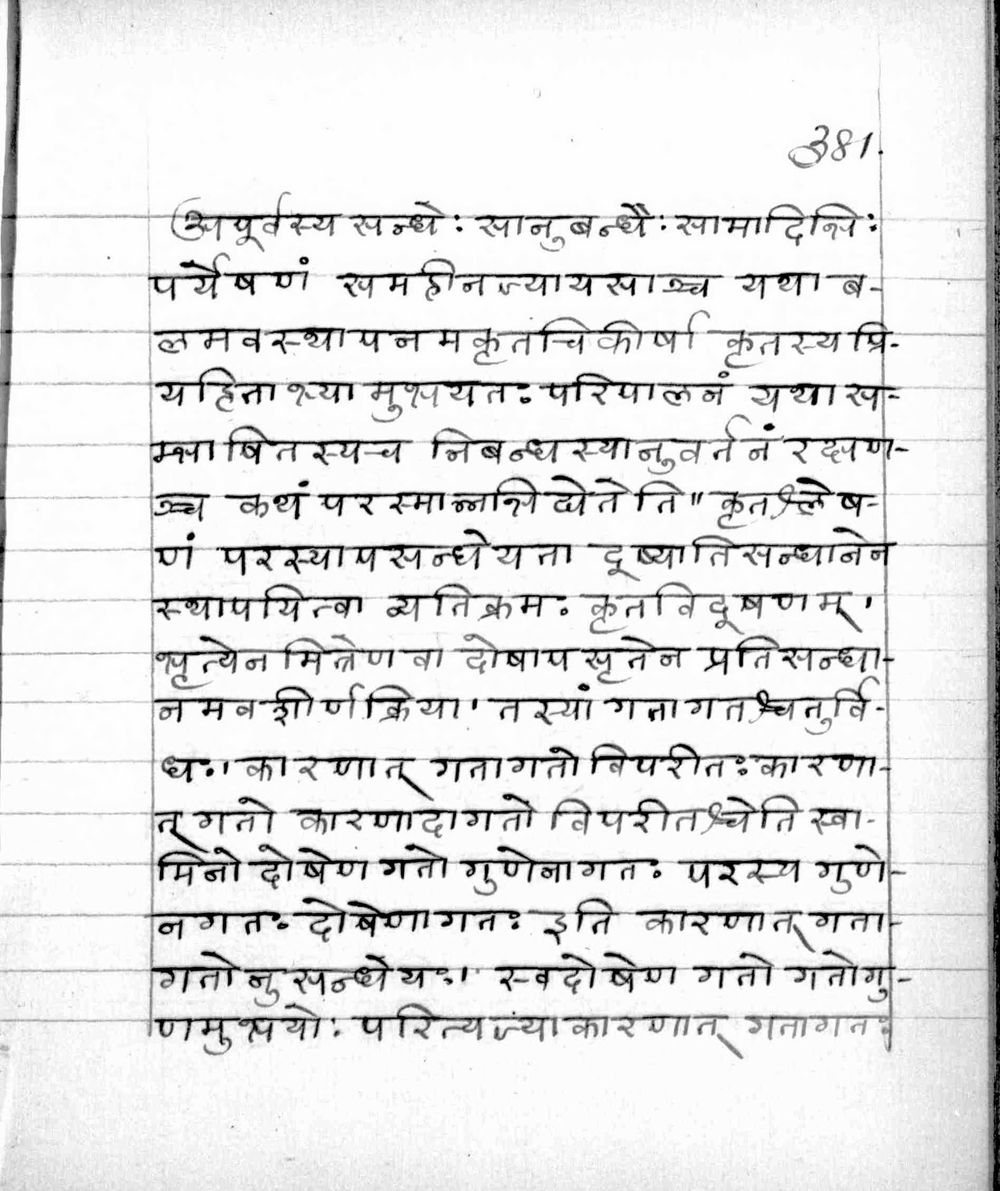 381.
अपूर्वस्य सन्धेः सानुबन्धैः सामादिभिः
पर्येषणं समहीनज्यायसाञ्च यथा ब-
लमवस्थापनमकृतचिकीर्षा कृतस्य प्रि-
यहिताभ्यामुभयतः परिपालनं यथास-
म्भाषितस्यच निबन्धस्यानुवर्तनं रक्षण-
ञ्च कथं परस्मान्नभिद्येतेति" कृतश्लेष-
णं परस्यापसन्धेयता दूष्यातिसन्धानेन
स्थापयित्वा व्यतिक्रमः कृतविदूषणम्।
भृत्येन मित्रेणवा दोषापसृतेन प्रतिसन्धा-
नमवशीर्णक्रिया। तस्यां गतागतश्चतुर्वि-
धः। कारणात् गतागतो विपरीतः कारणा-
त् गतो कारणादागतो विपरीतश्चेति स्वा-
मिनो दोषेण गतो गुणेनागतः परस्य गुणे-
नगतः दोषेणागतः इति कारणात् गता-
गतोनुसन्धेयः। स्वदोषेण गतो गतोगु-
णमुभयोः परित्यज्याकारणात् गतागतः